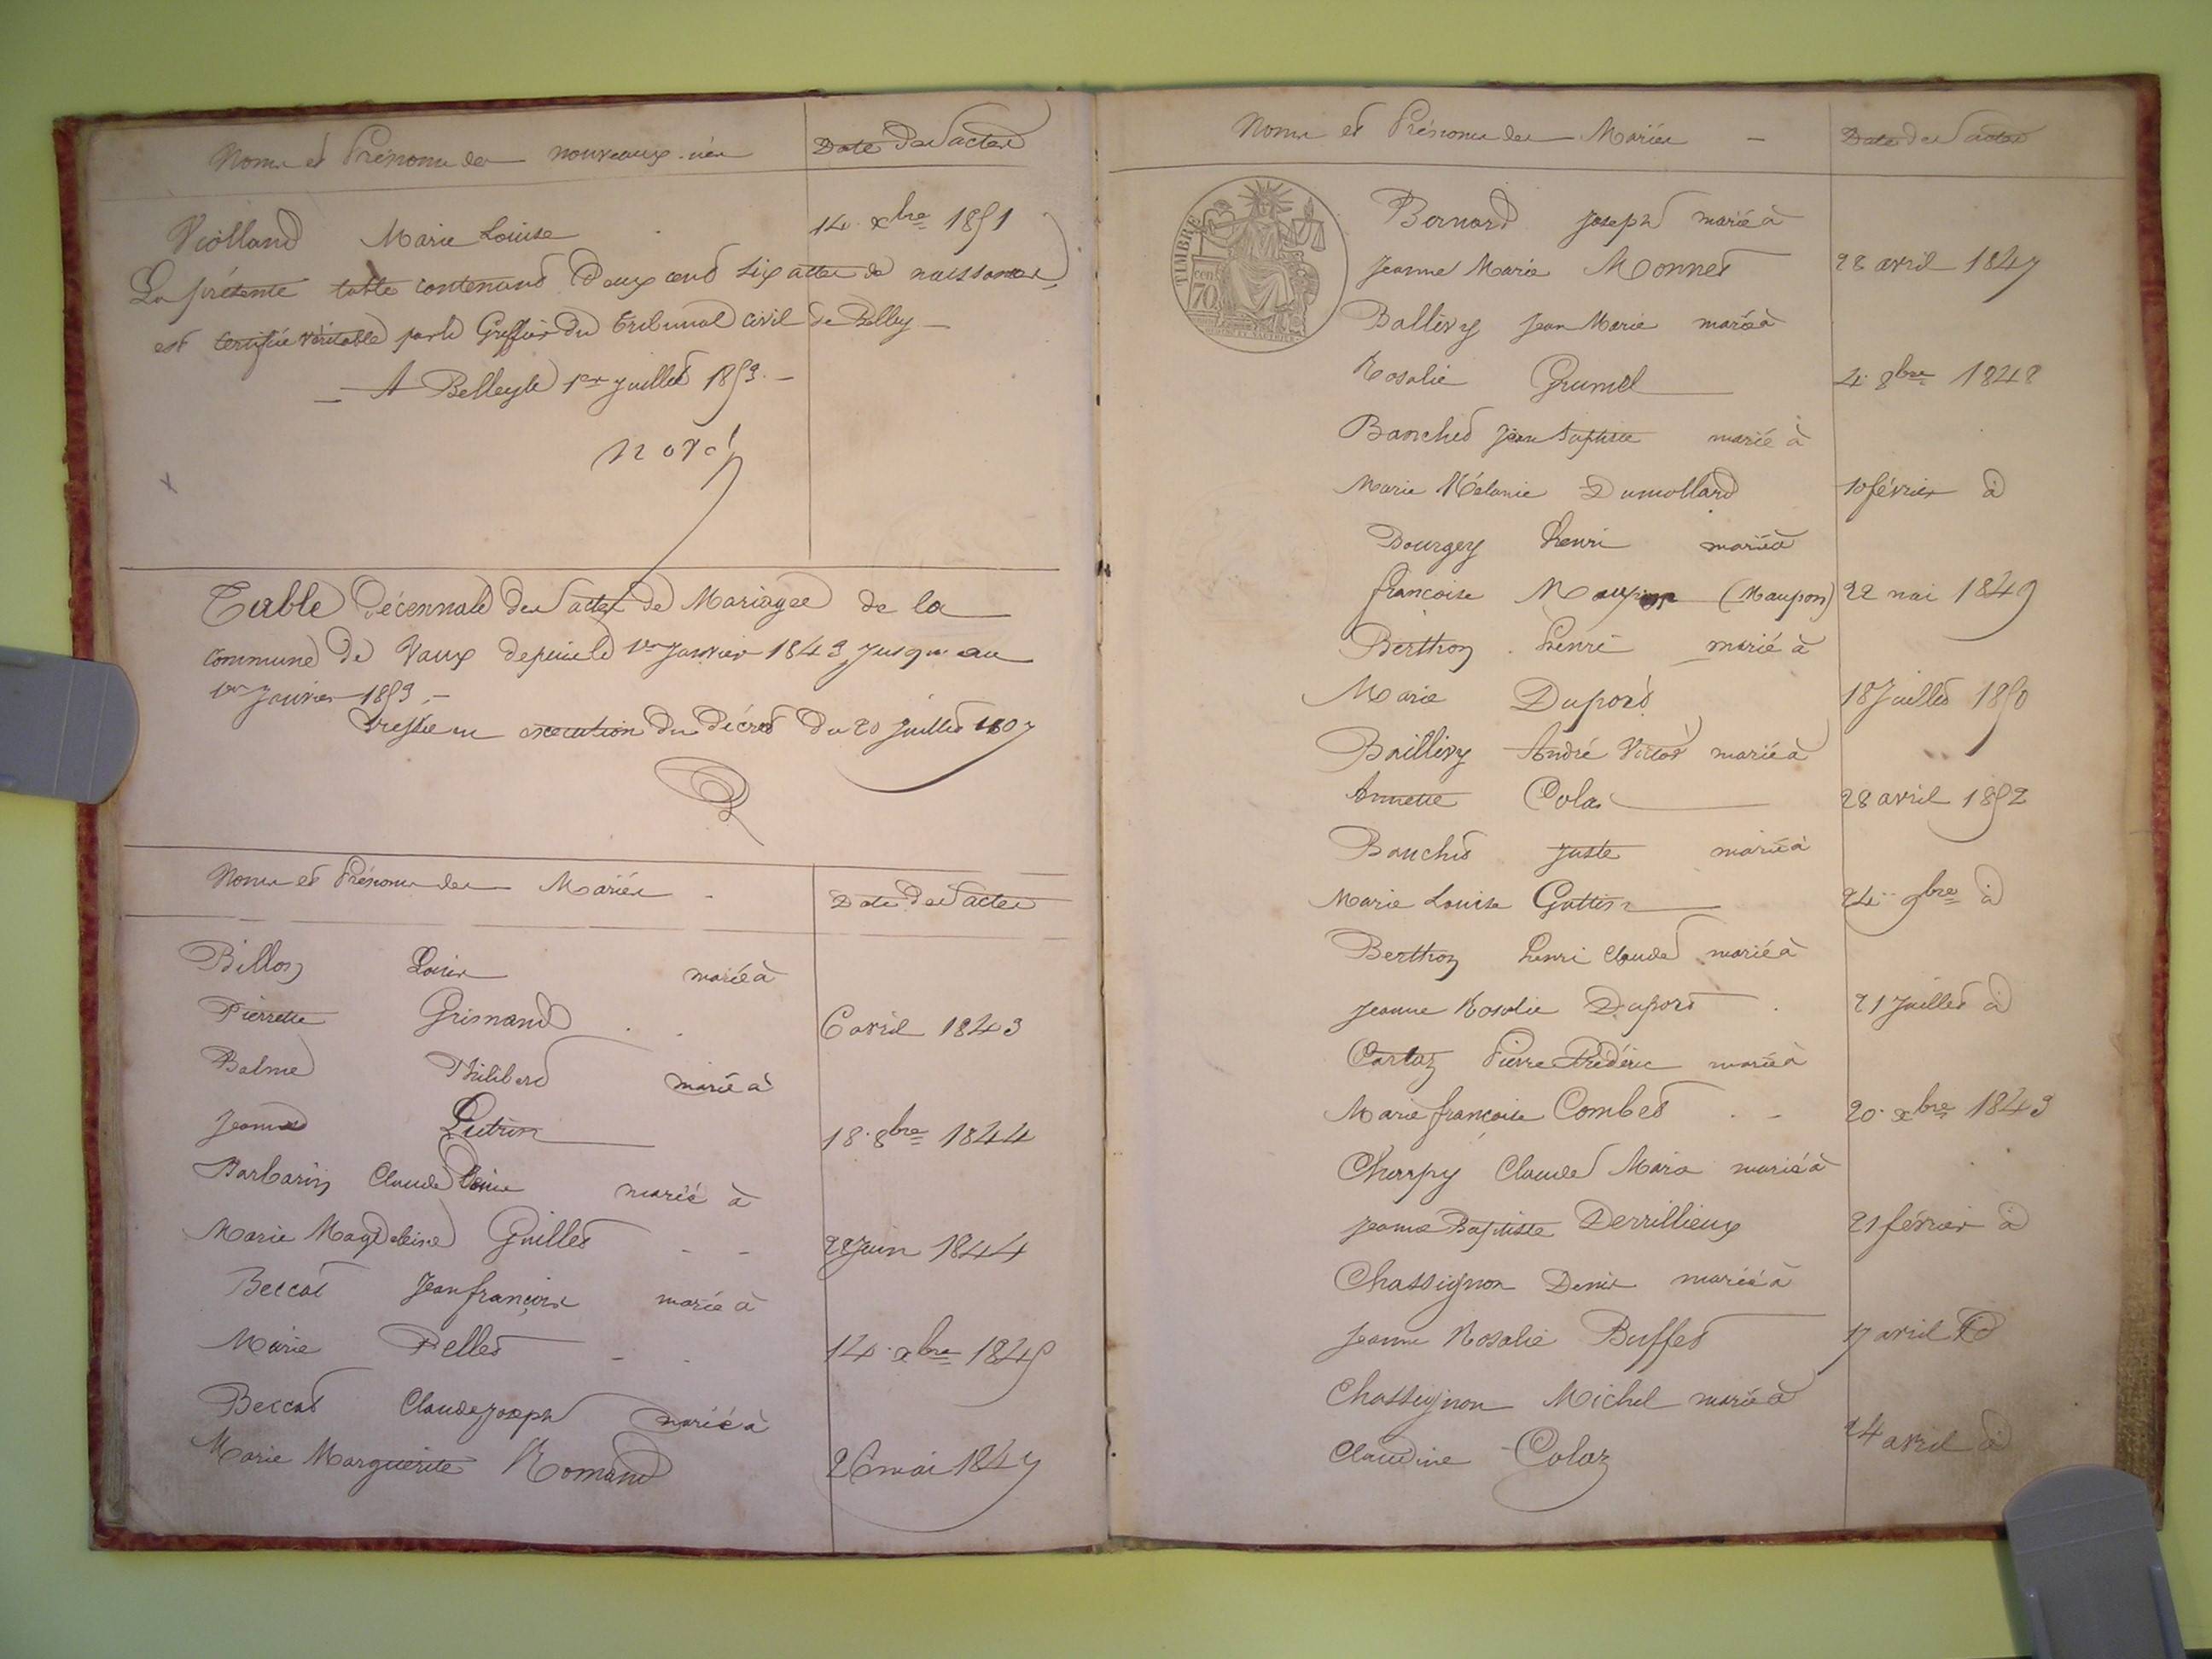 Noms et Prénoms des nouveaux-nés
Date des actes
Violland Marie Louise
14 xbre 1851
La présente table contenant Deux cent six actes de naissances,
est certifiée véritable par le Greffier du tribunal civil de Belley
A Belley le 1er juillet 1853.
Table Décennale des actes de Mariages de la
commune de Vaux depuis le 1er Janvier 1843 jusqu'au
1er Janvier 1853.
Dressée en exécution du Décret du 20 juillet 1807
Noms et Prénoms des Mariés
Date des actes
Billon Louis marié à
Pierrette Grisnand
6 avril 1843
Balme Philibert marié à
Jeanne Lutrin
18 8bre 1844
Barbarin Claude Louis marié à
Marie Magdeleine Guillet
28 Juin 1844
Beccat Jean françois marié à
Marie Pellet
14 xbre 1845
Beccat Claude Joseph marié à
Marie Marguerite Romand
26 mai 1847
Noms et Prénoms des Mariés
Date des actes
TIMBRE
70
Bernard Joseph marié à
Jeanne Marie Monnet
28 avril 1847
Ballivy Jean Marie marié à
Rosalie Grumel
4 8bre 1848
Banchet Jean Baptiste marié à
Marie Mélanie Dumollard
10 février d
Bourgey henri marié à
françoise (Maupon)
22 mai 1849
Berthon henri marié à
Marie Duport
18 Juillet 1850
Baillivy André Victor marié à
Annette Colas
28 avril 1852
Banchet Juste marié à
Marie Louise Guttin
24 9bre d
Berthon henri Claude marié à
Jeanne Rosalie Duport
21 Juillet d
Cartaz Pierre Frédéric marié à
Marie françoise Combet
20 xbre 1843
Charpy Claude Marie marié à
Jeanne Baptiste Derrillieux
21 février d
Chassignon Denis marié à
Jeanne Rosalie Buffet
17 avril d
Chassignon Michel marié à
Claudine Colaz
24 avril d